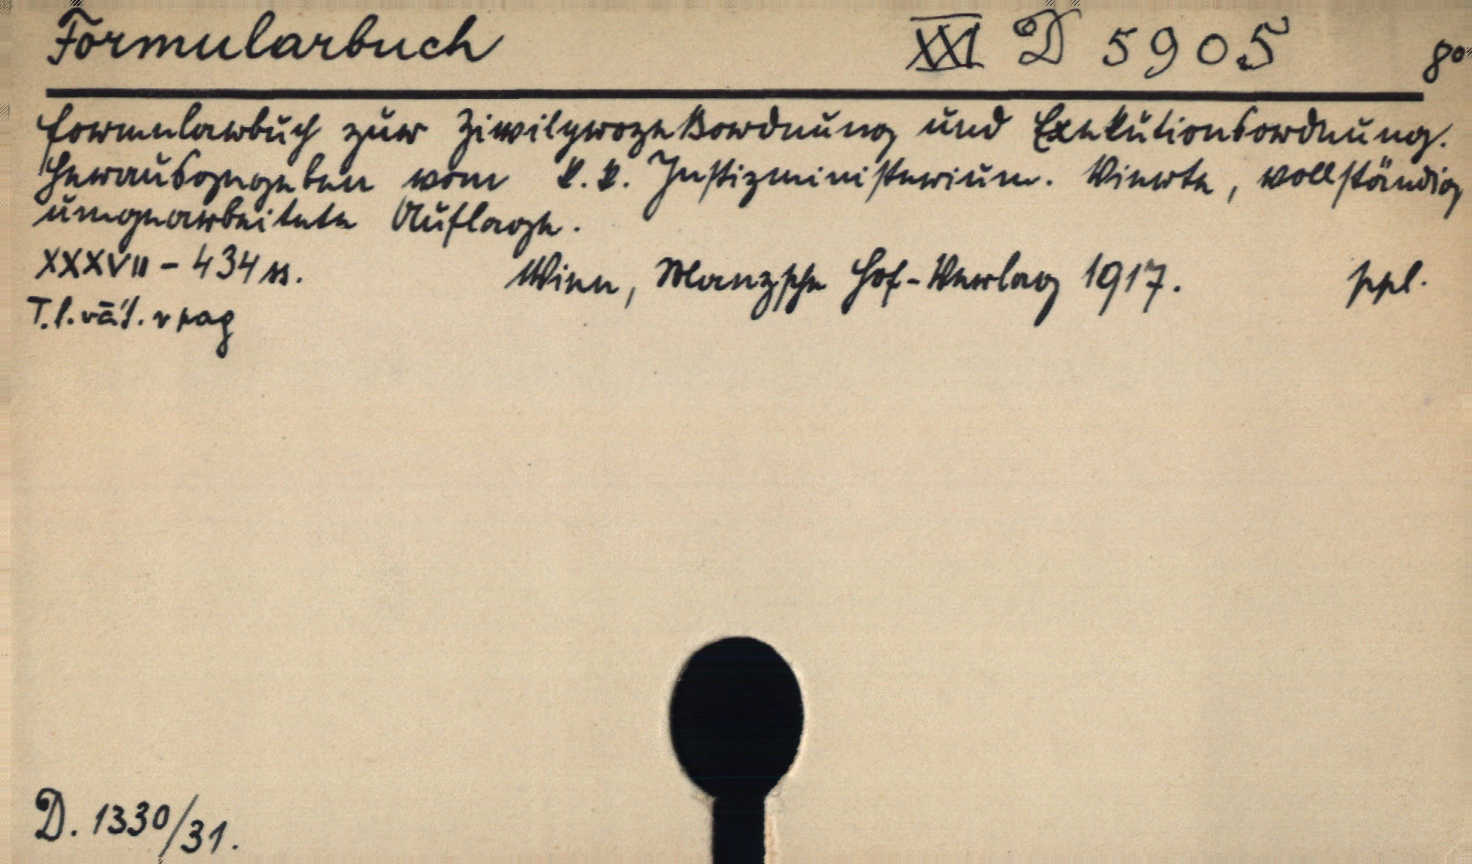 Formularbuch XXI D 5905 8°
Formularbuch zur Zivilprozeßordnung und Exekutionsordnung.
Herausgegeben vom k.k. Justizministerium. Vierte, vollständig
umgearbeitete Auflage.
XXXVII - 434 ss. Wien, Manzsche Hof-Verlag 1917. ppl.
D. 1330/31.